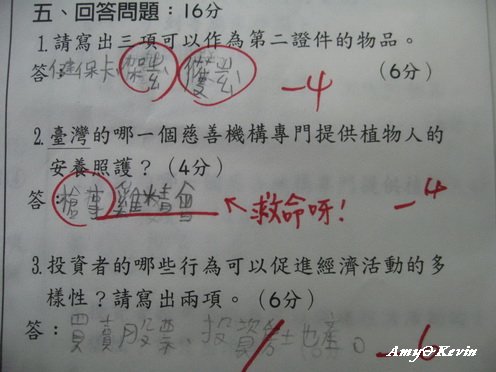 五、回答問題：16分
1.請寫出三項可以作為第二證件的物品。
答：健保卡 （6分）
-4
2.臺灣的哪一個慈善機構專門提供植物人的
安養照護？（4分）
答：
救命呀！ -4
3.投資者的哪些行為可以促進經濟活動的多
樣性？請寫出兩項。（6分）
答：買賣股票、投資 地產。 -6
Amy∂Kevin